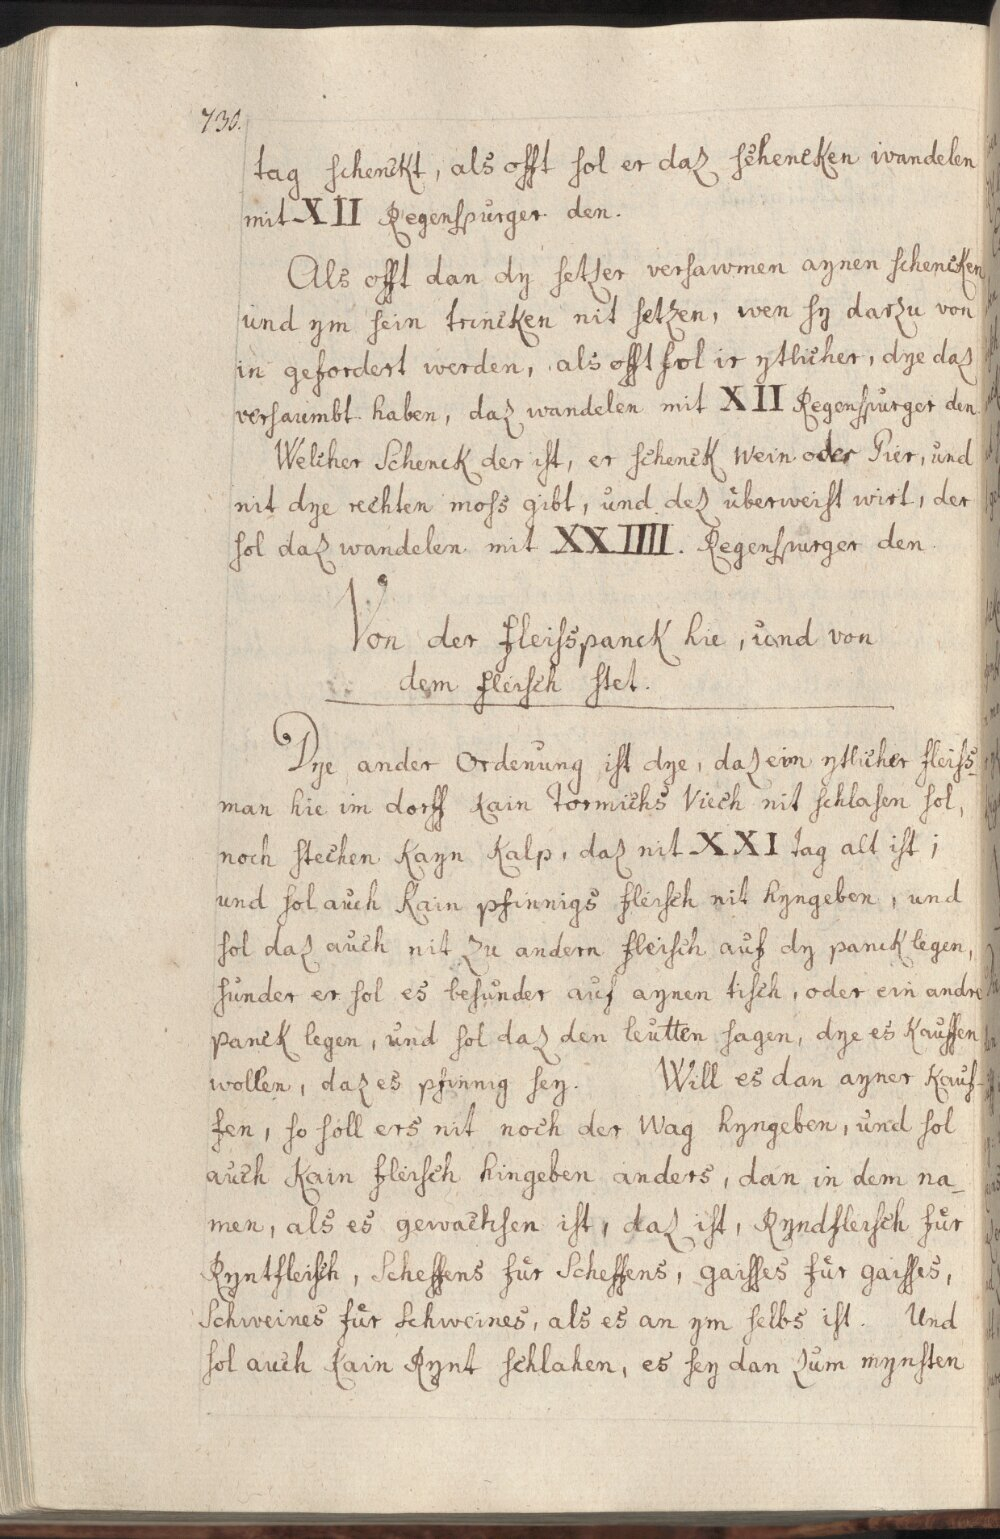 730.
tag schenckt, als offt sol er daz schencken wandelen
mit XII Regenspurger den.
Als offt dan dy setzer versawmen aynen schencken
und ym sein trincken nit setzen, wen sy darzu von
in gefordert werden, als offt sol ir ytlicher, dye daz
versaumbt haben, daz wandelen mit XII Regenspurger den
Welcher Schenck der ist, er schenck wein oder Pier, und
nit dye rechten moss gibt, und dez überweist wirt, der
sol daz wandelen mit XXIIII. Regenspurger den
Von der fleisspanck hie, und von
dem fleisch stet.
Dye ander Ordenung ist dye, daz ein ytlicher fleiss-
man hie im dorff kain tormichs Viech nit schlahen sol,
noch stechen kayn kalp, daz nit XXI tag alt ist;
und sol auch kain pfinnigs fleisch nit hyngeben, und
sol daz auch nit zu andern fleisch auf dy panck legen,
sunder er sol es besunder auf aynen tisch, oder ein andre
panck legen, und sol daz den leutten sagen, dye es kauffen
wollen, daz es pfinnig sey. Will es dan ayner kauf-
fen, so soll ers nit noch der wag hyngeben, und sol
auch kain fleisch hingeben anders, dan in dem na-
men, als es gewachsen ist, daz ist, Ryndfleisch für
Ryntfleisch, Scheffens für Scheffens, gaisses für gaisses,
Schweines für Schweines, als es an ym selbs ist. Und
sol auch kain Rynt schlahen, es sey dan zum mynsten